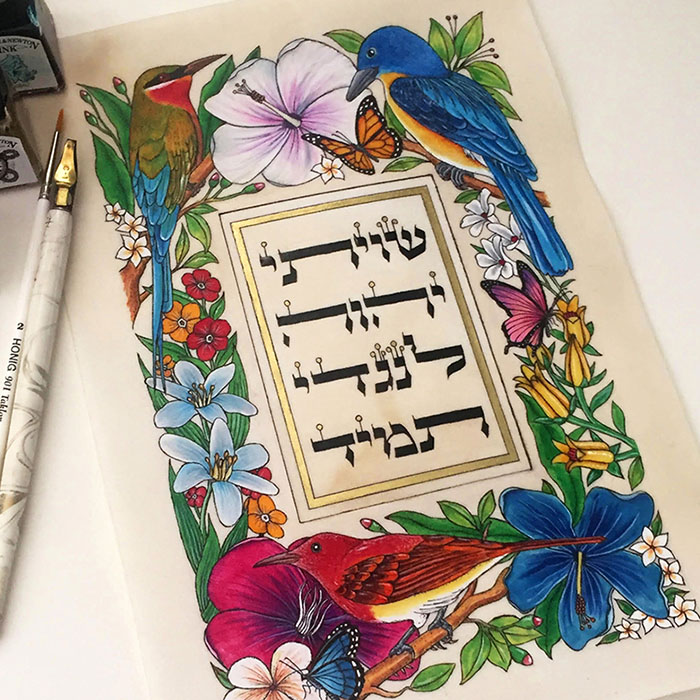 שויתי
יהוה
לנגדי
תמיד
& NEWTON
INK
2 HONIG 901